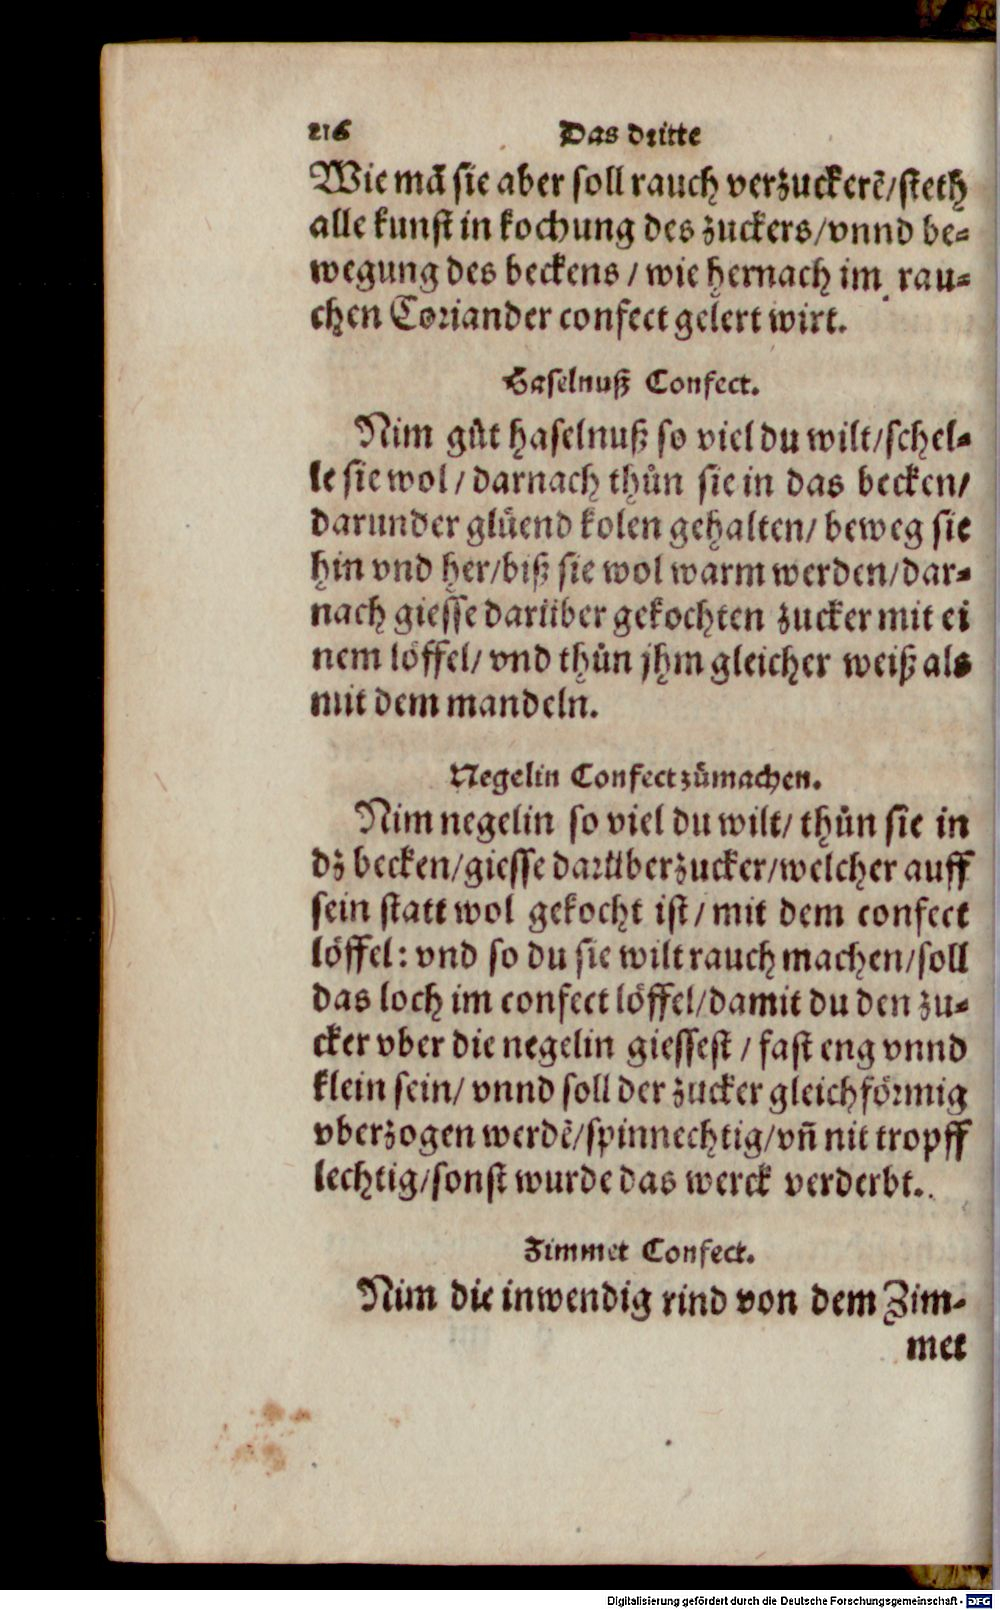 216 Das dritte
Wie mã sie aber soll rauch verzuckerẽ/steth
alle kunst in kochung des zuckers/vnnd be-
wegung des beckens / wie hernach im rau-
chen Coriander confect gelert wirt.
Haselnuß Confect.
Nim gůt haselnuß so viel du wilt/schel-
le sie wol / darnach thůn sie in das becken/
darunder glüend kolen gehalten/ beweg sie
hin vnd her/biß sie wol warm werden/dar-
nach giesse darüber gekochten zucker mit ei
nem löffel/ vnd thůn jhm gleicher weiß als
mit dem mandeln.
Negelin Confect zůmachen.
Nim negelin so viel du wilt/ thůn sie in
dz becken/giesse darüber zucker/welcher auff
sein statt wol gekocht ist / mit dem confect
löffel: vnd so du sie wilt rauch machen/soll
das loch im confect löffel/damit du den zu-
cker vber die negelin giessest / fast eng vnnd
klein sein/ vnnd soll der zucker gleichförmig
vberzogen werdẽ/spinnechtig/vñ nit tropff
lechtig/sonst wurde das werck verderbt.
Zimmet Confect.
Nim die inwendig rind von dem Zim-
met
Digitalisierung gefördert durch die Deutsche Forschungsgemeinschaft - DFG